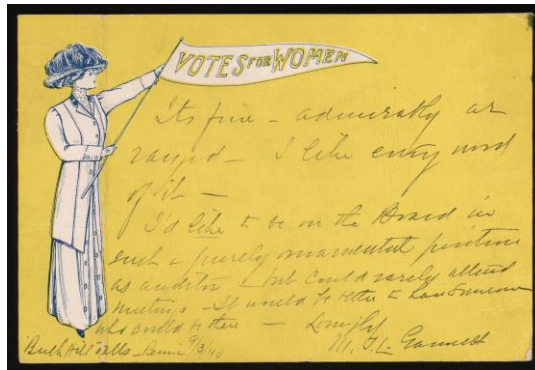 VOTES FOR WOMEN
Its fine - admirably ar
ranged - I like every word
of it -
I'd like to be on the Board in
such a purely ornamental position
as auditor - but could rarely attend
meetings - It would be better to have someone
who could be there - Lovingly
M. T. L. Gannett
9/3/10